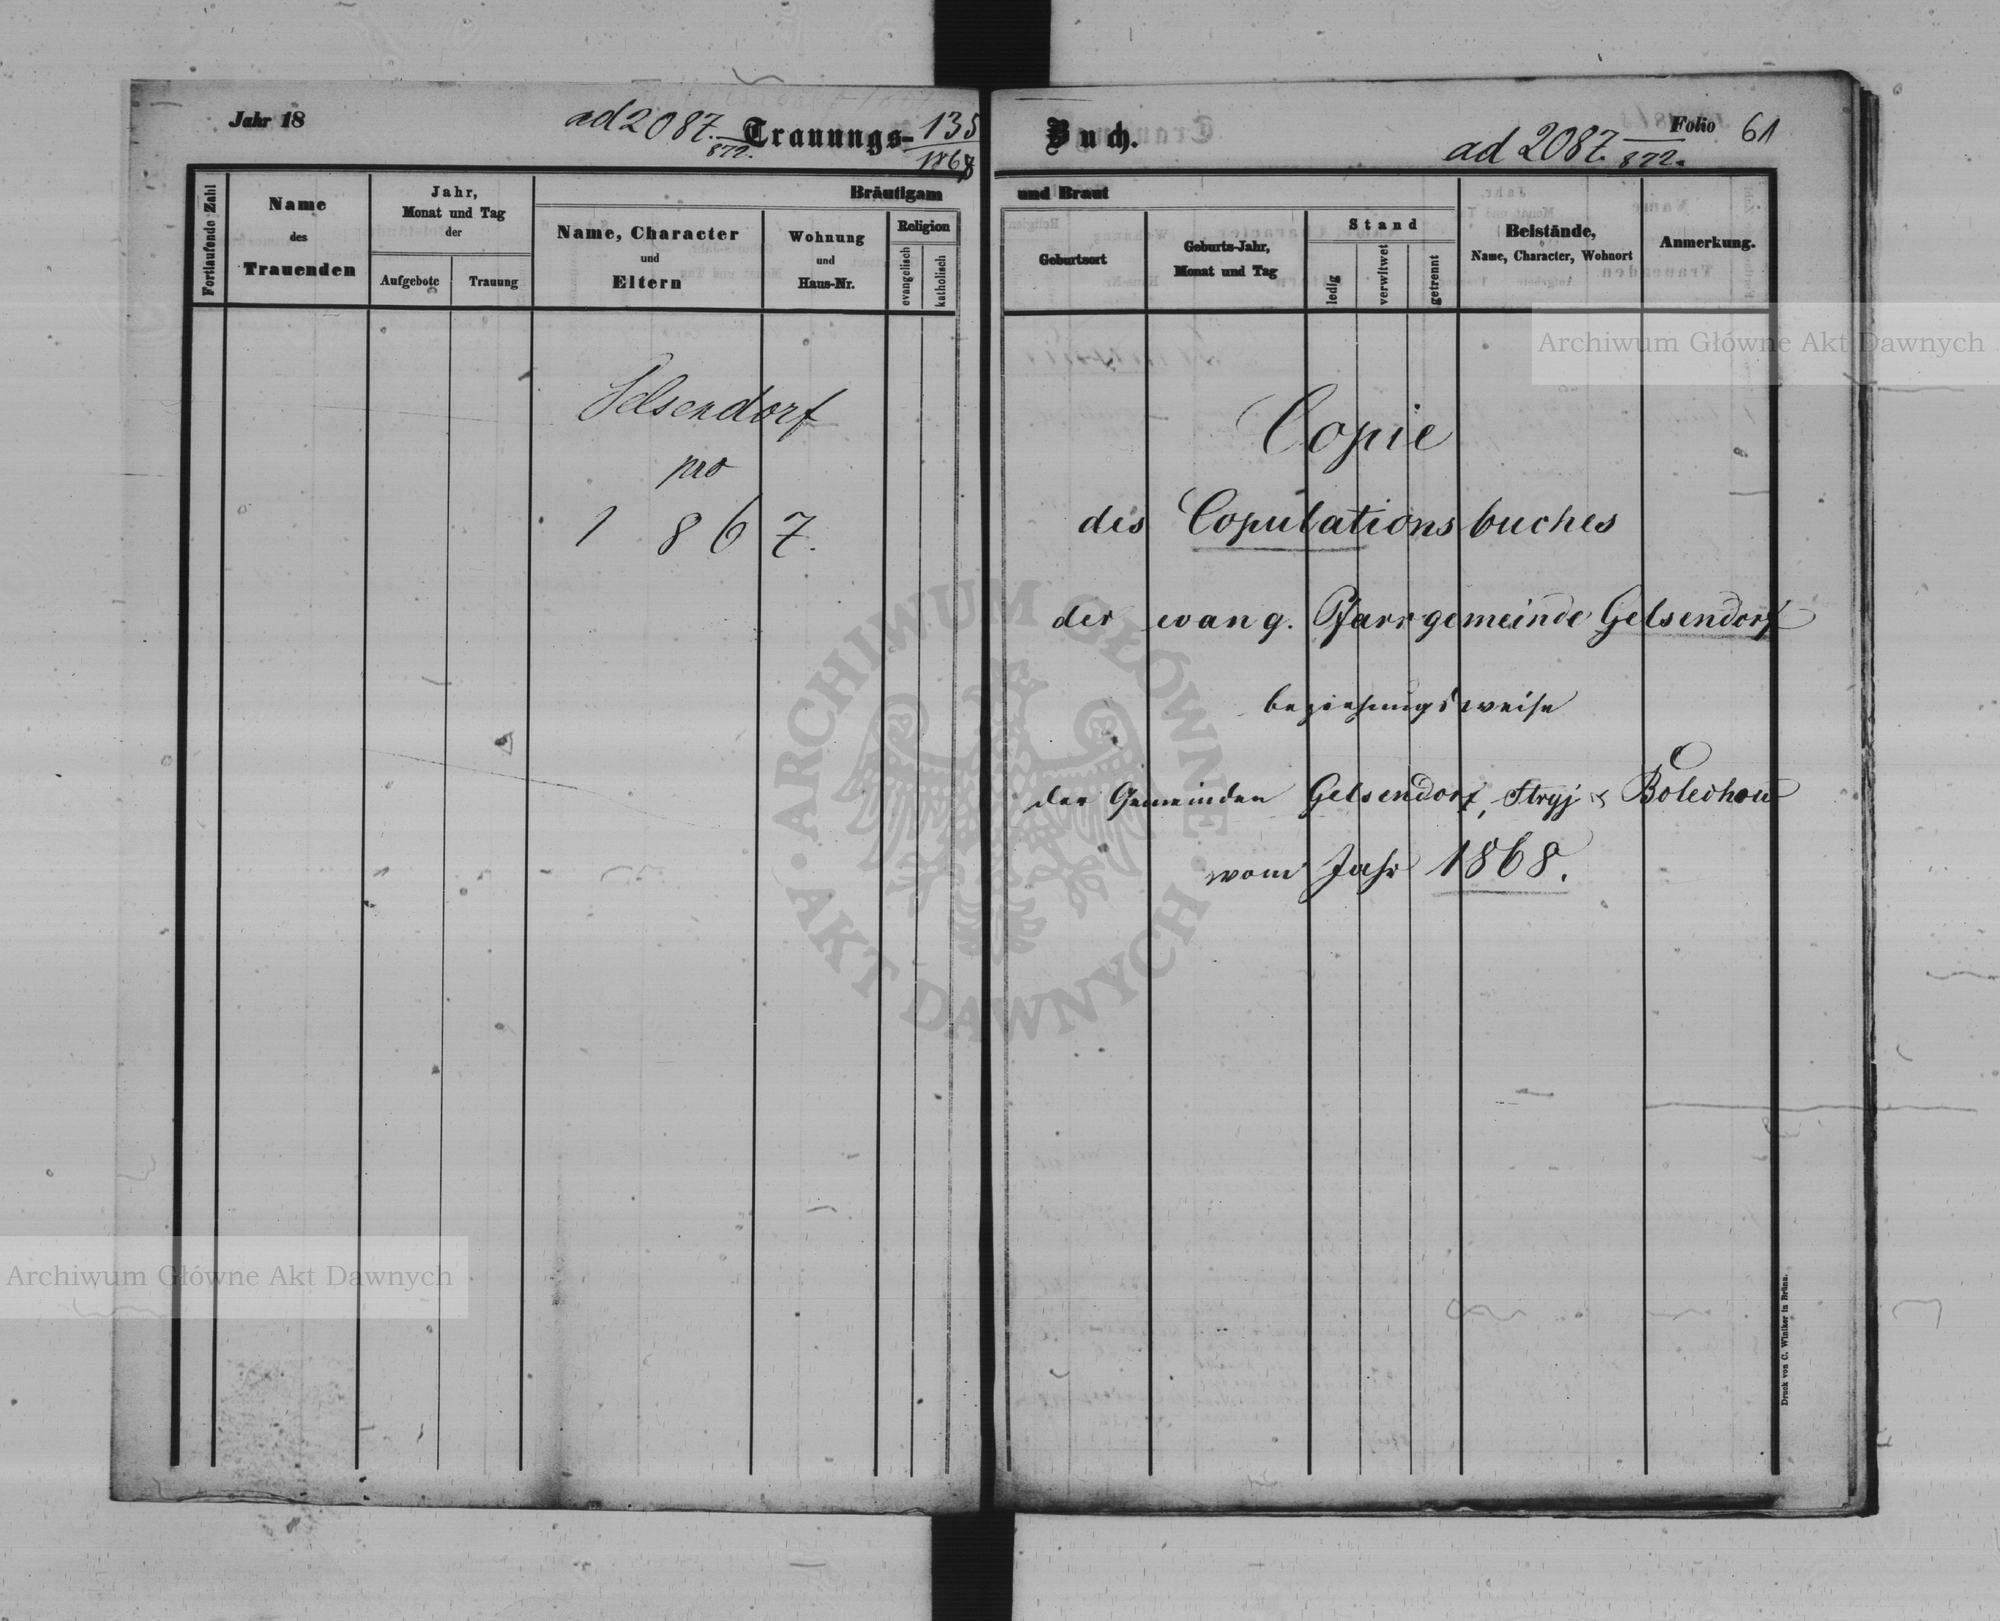 Jahr 18
ad 2087. / 872.
Trauungs-
135 / 1868
Fortlaufende Zahl
Name
des
Trauenden
Jahr,
Monat und Tag
der
Aufgebote
Trauung
Bräutigam
Name, Character
und
Eltern
Wohnung
und
Haus-Nr.
Religion
evangelisch
katholisch
Gelsendorf
pro
1867.
Buch.
Folio 61
ad 2087. / 872.
und Braut
Geburtsort
Geburts-Jahr,
Monat und Tag
Stand
ledig
verwitwet
getrennt
Beistände,
Name, Character, Wohnort
Anmerkung.
Copie
des Copulationsbuches
der evang. Pfarrgemeinde Gelsendorf
beziehungsweise
der Gemeinden Gelsendorf, Stryj & Bolechow
vom Jahr 1868.
Druck von C. Winiker in Brünn.
Archiwum Główne Akt Dawnych
ARCHIWUM GŁÓWNE
AKT DAWNYCH
Archiwum Główne Akt Dawnych